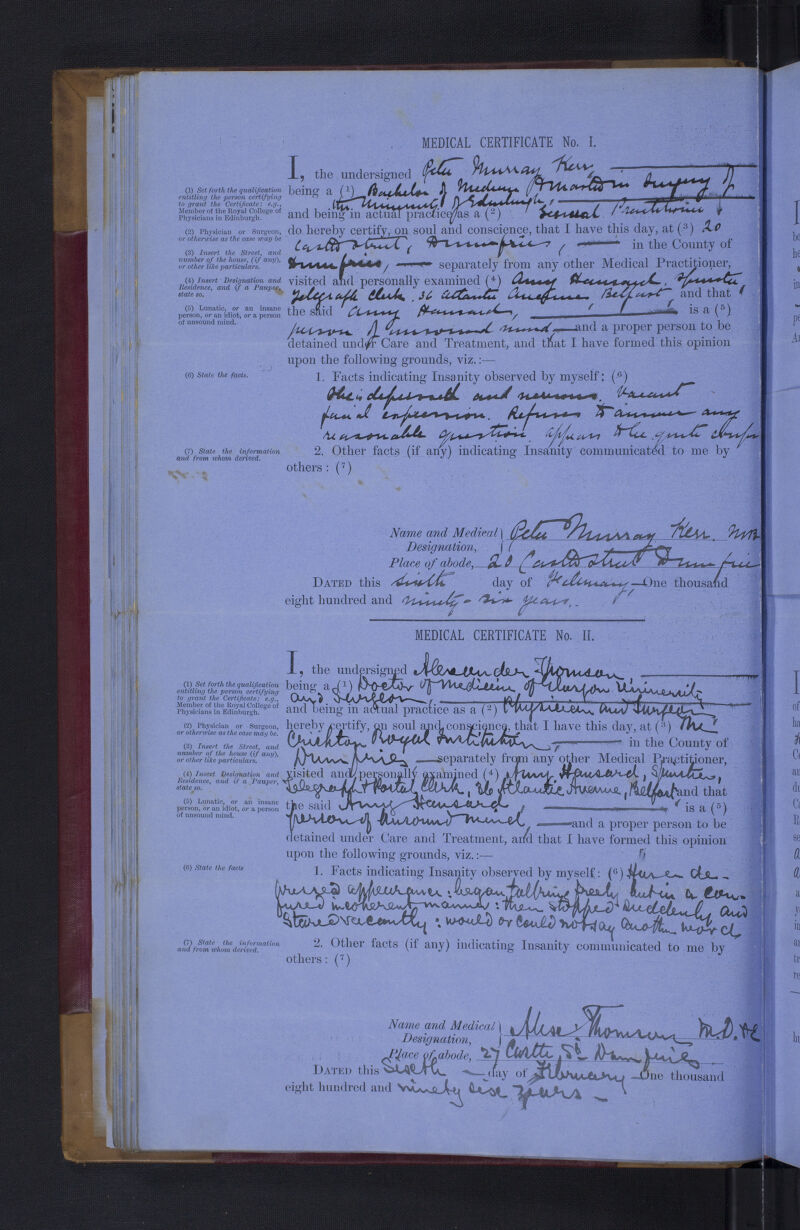 MEDICAL CERTIFICATE No. I.
I, the undersigned Peter Murray Kerr
(1) Set forth the qualification entitling the person certifying to grant the Certificate; e.g., Member of the Royal College of Physicians in Edinburgh.
being a (1) Bachelor of Medicine & Master in Surgery of
the University of Edinburgh,
and being in actual practice as a (2) General Practitioner
(2) Physician or Surgeon, or otherwise as the case may be
do hereby certify, on soul and conscience, that I have this day, at (3) 20
Castle Street, Dumfries, in the County of
(3) Insert the Street, and number of the house, (if any), or other like particulars.
Dumfries, separately from any other Medical Practitioner,
(4) Insert Designation and Residence, and if a Pauper, state so.
visited and personally examined (4) Amy Hansard, Spinster,
Telegraph Clerk, 36 Atlantic Avenue Belfast, and that
(5) Lunatic, or an insane person, or an idiot, or a person of unsound mind.
the said Amy Hansard, is a (5)
person of unsound mind, and a proper person to be
detained under Care and Treatment, and that I have formed this opinion
upon the following grounds, viz.:—
(6) State the facts.
1. Facts indicating Insanity observed by myself; (6)
She is depressed and nervous. Vacant
facial expression. Refuses to answer any
reasonable question, appears to be quite
(7) State the information and from whom derived.
2. Other facts (if any) indicating Insanity communicated to me by
others: (7)
Name and Medical Designation, Peter Murray Kerr. MB
Place of abode, 20 Castle Street Dumfries
DATED this sixth day of February—One thousand
eight hundred and ninety-six years.
MEDICAL CERTIFICATE No. II.
I, the undersigned Alexander Thomson,
(1) Set forth the qualification entitling the person certifying to grant the Certificate: e.g., Member of the Royal College of Physicians in Edinburgh.
being a (1) Doctor of Medicine of Glasgow University
and Surgeon
and being in actual practice as a (2) Physician and Surgeon
(2) Physician or Surgeon, or otherwise as the case may be.
hereby certify, on soul and conscience, that I have this day, at (3) The
Crichton Royal Institution, in the County of
(3) Insert the Street, and number of the house (if any), or other like particulars.
Dumfries separately from any other Medical Practitioner,
(4) Insert Designation and Residence, and if a Pauper, state so.
visited and personally examined (4) Amy Hansard, Spinster,
Telegraph & Postal Clerk, 36 Atlantic Avenue, Belfast and that
(5) Lunatic, or an insane person, or an idiot, or a person of unsound mind.
the said Amy Hansard, is a (5)
person of unsound mind, and a proper person to be
detained under Care and Treatment, and that I have formed this opinion
upon the following grounds, viz.:—
(6) State the facts
1. Facts indicating Insanity observed by myself: (6) Has a de-
pressed appearance: began talking freely but in a con-
fused incoherent manner: then stopped suddenly and
stared vacantly: would or could not say another word
(7) State the information and from whom derived.
2. Other facts (if any) indicating Insanity communicated to me by
others: (7)
Name and Medical Designation, Alexr Thomson M.D.
Place of abode, 27 Castle St Dumfries
DATED this Sixth day of February—One thousand
eight hundred and ninety six years